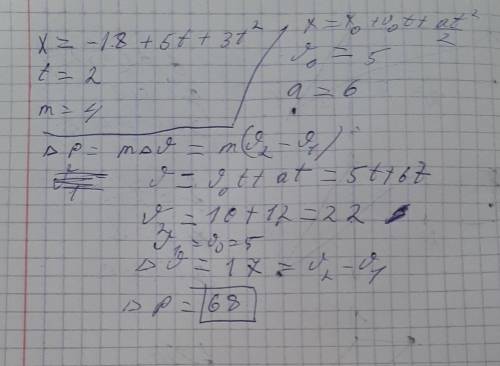 x = -18 + 5t + 3t²
t = 2
m = 4
x = x₀ + υ₀t + at²/2
υ₀ = 5
a = 6
△P = m△υ = m(υ₂ - υ₁)
υ = υ₀t + at = 5t + 6t
υ₂ = 10 + 12 = 22
υ₁ = υ₀ = 5
△υ = 17 = υ₂ - υ₁
△P = 68